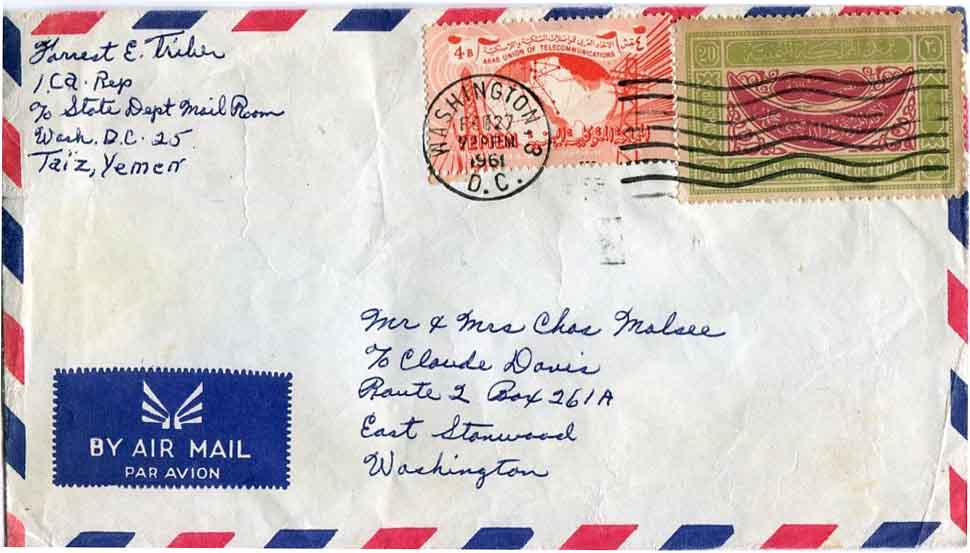 Forrest E. Fisher
ICA. Rep
℅ State Dept Mail Room
Wash. D.C. 25
Taiz, Yemen
4 B
ARAB UNION OF TELECOMMUNICATIONS
WASHINGTON
FEB 27
YEMEN
1961
D.C.
20
٢٠
Mr & Mrs Chas Molsee
℅ Claude Davis
Route 2 Box 261A
East Stanwood
Washington
BY AIR MAIL
PAR AVION